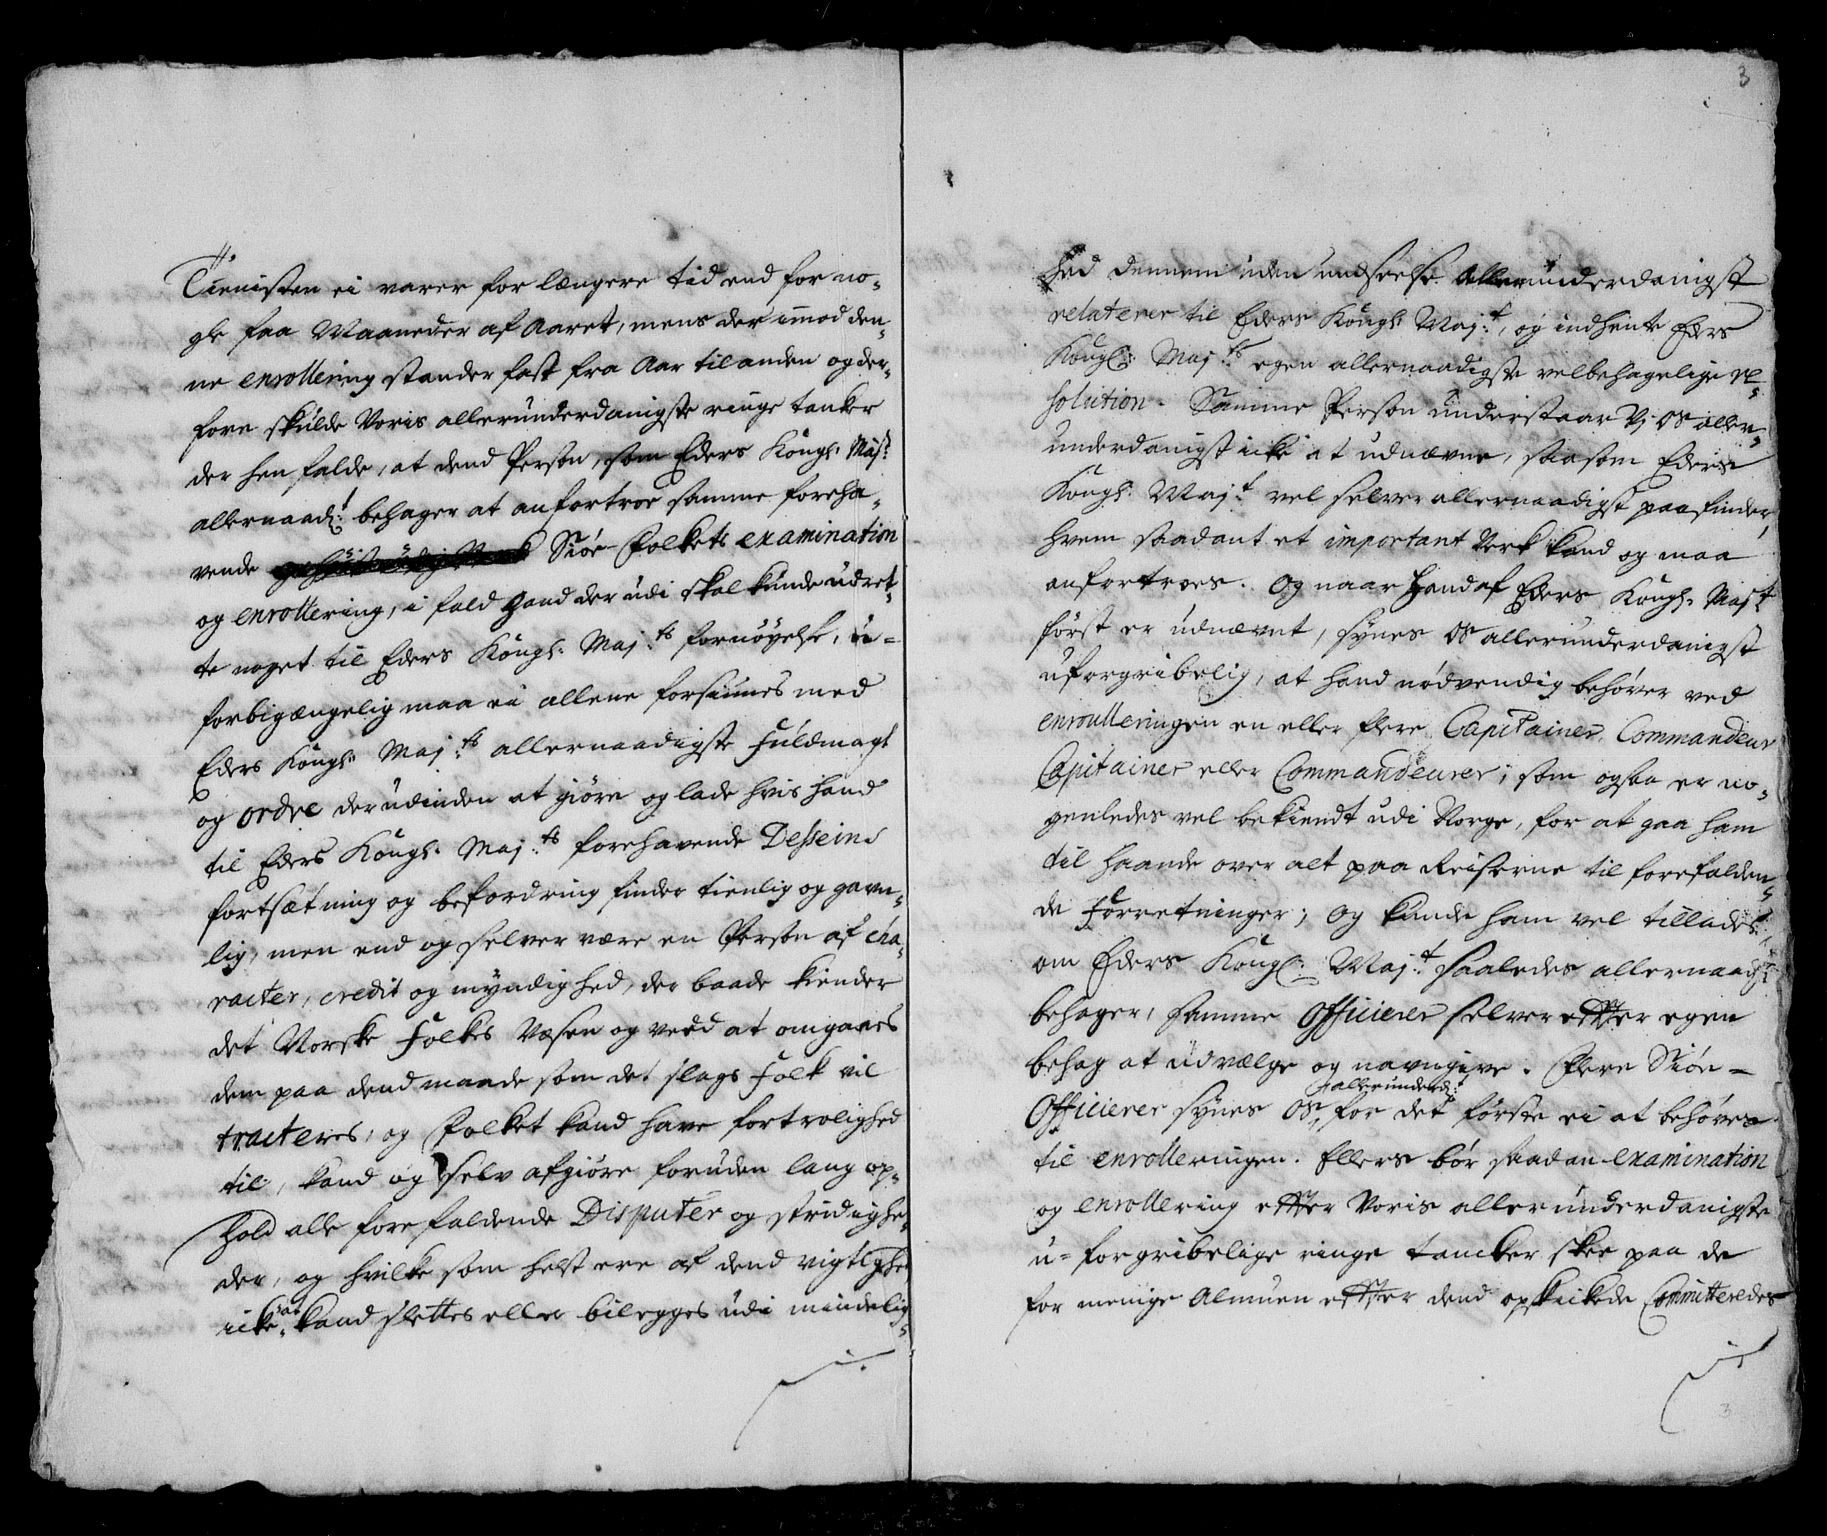 Tienisten ei varer for længere tid end for no-
gle faa Maaneder af Aaret, mens der imod den-
ne enrollering stander fast fra Aar til anden og der-
fore skulde Voris allerunderdanigste ringe tanker
der hen falde, at dend Person, som Eders Kongl: Majt:
allernaad:t behager at anfortroe samme foreha-
vende Siøe-Folkets examination
og enrollering, i fald Hand der udi skal kunde udret-
te noget til Eders Kongl: Maj:ts fornøyelse, u-
forbigængelig maa ei allene forsiunes med
Eders Kongl: Maj:ts allernaadigste Fuldmagt
og ordre derudinden at giøre og lade hvis hand
til Eders Kongl: Maj:ts forehavende Desseins
fortsætning og befordring finder tienlig og gavn-
lig, men end og selver være en Person af cha-
racter, credit og myndighed, der baade kiender
det Norske Folkes Væsen og veed at omgaaes
dem paa dend maade som det slags Folk vil
tracteres, og Folket kand have fortrolighed
til, kand og selv afgiøre foruden lang op-
hold alle forefaldende Disputer og stridighe-
der, og hvilke som helst ere af dend vigtighed
icke at kand slettes eller bilegges udi mindelig-
3
hed dennem uden undseelse allerunderdanigst
relaterer til Eders Kongl: Maj:t, og indhente Eders
Kongl: Maj:ts egen allernaadigste velbehagelige re-
solution. Samme Person understaar Vj os aller-
underdanigst icke at udnævne, saasom Eders
Kongl: Maj:t vel selver allernaadigst paafinder,
hvem saadant et important Verk kand og maa
anfortroes. Og naar Hand af Eders Kongl: Majt
først er udnævnt, synes os allerunderdanigst
uforgribelig, at hand nødvendig behøver ved
enroulleringen en eller flere Capitainer, Commandeur
Capitainer eller Commandeurer, som ogsaa er no-
genledes vel bekiendt udi Norge, for at gaa ham
til haande over alt paa Reiserne til forefalden-
de Forretninger; og kunde ham vel tillades,
om Eders Kongl: Maj:t saaledes allernaad:t
behager, samme Officierer selver effter egen
behag at udvælge og navngive. Flere Siøe-
Officierer synes os allerunderd:t for det første ei at behøves
til enrolleringen. Ellers bør saadan examination
og enrollering effter Voris allerunderdanigste
u-forgribelige ringe tancker skee paa de
for menige Almuen effter dend opskickede Committeredes
3